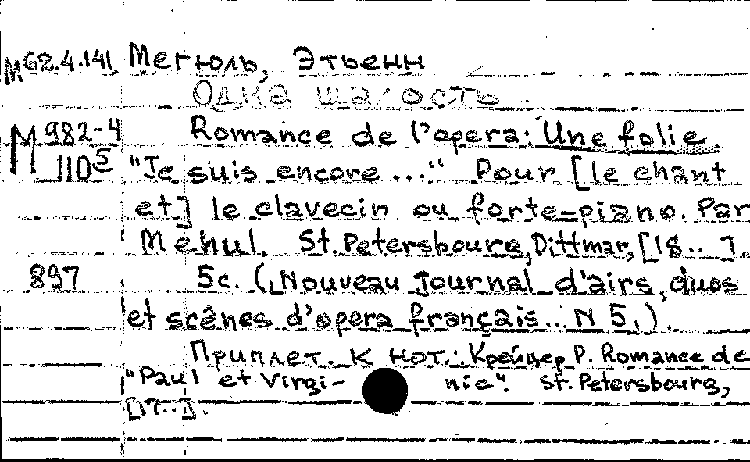 М62.4.141 Мегюль, Этьенн
Одна шалость
М 982-4 Romance de l'opera: Une folie
110⁵ "Je suis encore ..." Pour [le chant
et] le clavecin ou forte-piano. Par
Méhul. St. Petersbourg, Dittmar, [18.. ].
897 5c. (Nouveau Journal d'airs, duos
et scênes d'opera français.. N 5.).
Приплет. к нот.: Крейцер Р. Romance de
"Paul et Virgi- nie". St. Petersbourg,
[17..].